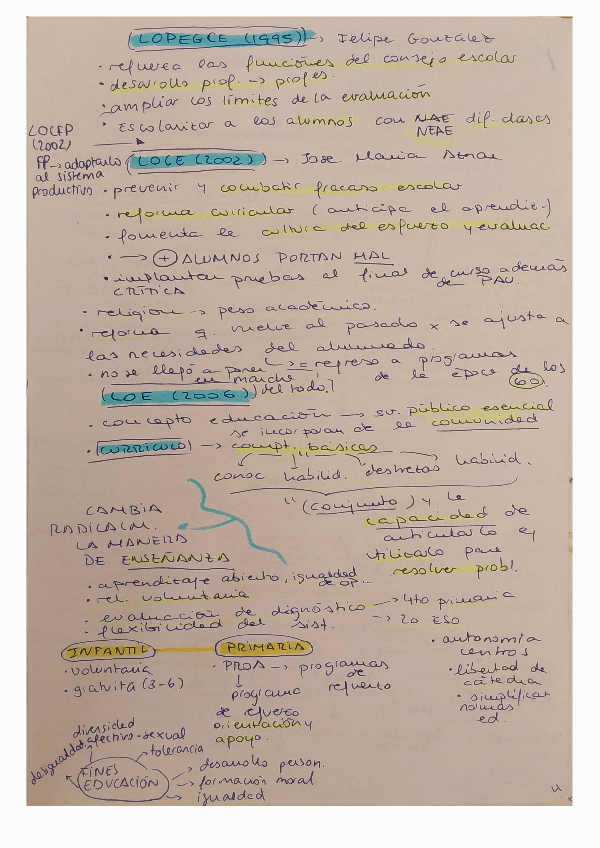 LOPEGCE (1995) → Felipe González
· refuerza las funciones del consejo escolar
· desarrollo prof. → profes.
· ampliar los límites de la evaluación
· Escolarizar a los alumnos con NAE dif. clases
NEAE
LOCFP
(2002)
FP → adaptarlo
al sistema
productivo
LOCE (2002) → Jose Maria Aznar
· prevenir y combatir fracaso escolar
· reforma curricular (anticipa el aprendiz.)
· fomenta la cultura del esfuerzo y evaluac
· → + ALUMNOS PORTAN MAL
· implantar pruebas al final de curso además
de PAU.
CRÍTICA
· religion → peso académico.
· reforma q. vuelve al pasado x se ajusta a
las necesidades del alumnado.
· no se llegó a poner → = regreso a programas
en marcha de la época de los
del todo. 60
LOE (2006)
· concepto educación → sv. público esencial
se incorporan de la comunidad
· CURRÍCULO → compt. básicas
conoc habilid. destrezas habilid.
" (conjunto) y la
capacidad de
articularlo y
utilizarlo para
resolver probl.
CAMBIA
RADICALM.
LA MANERA
DE ENSEÑANZA
· aprendizaje abierto, igualdad
de op...
· rel. voluntaria
· evaluación de diagnóstico → 4to primaria
· flexibilidad del sist. → 2o ESO
INFANTIL
· voluntaria
· gratuita (3-6)
PRIMARIA
· PROA → programas
de
refuerzo
programa
de refuerzo
orientación y
apoyo.
· autonomía
centros
· libertad de
cátedra
· simplificar
normas
ed.
diversidad
afectivo-sexual
desigualdad
tolerancia
FINES
EDUCACIÓN
→ desarrollo person.
→ formación moral
→ igualdad